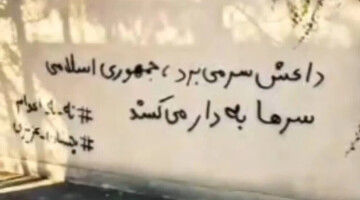 داعش سر می برد، جمهوری اسلامی
سرها به دار می کشند
#نه_به_اعدام